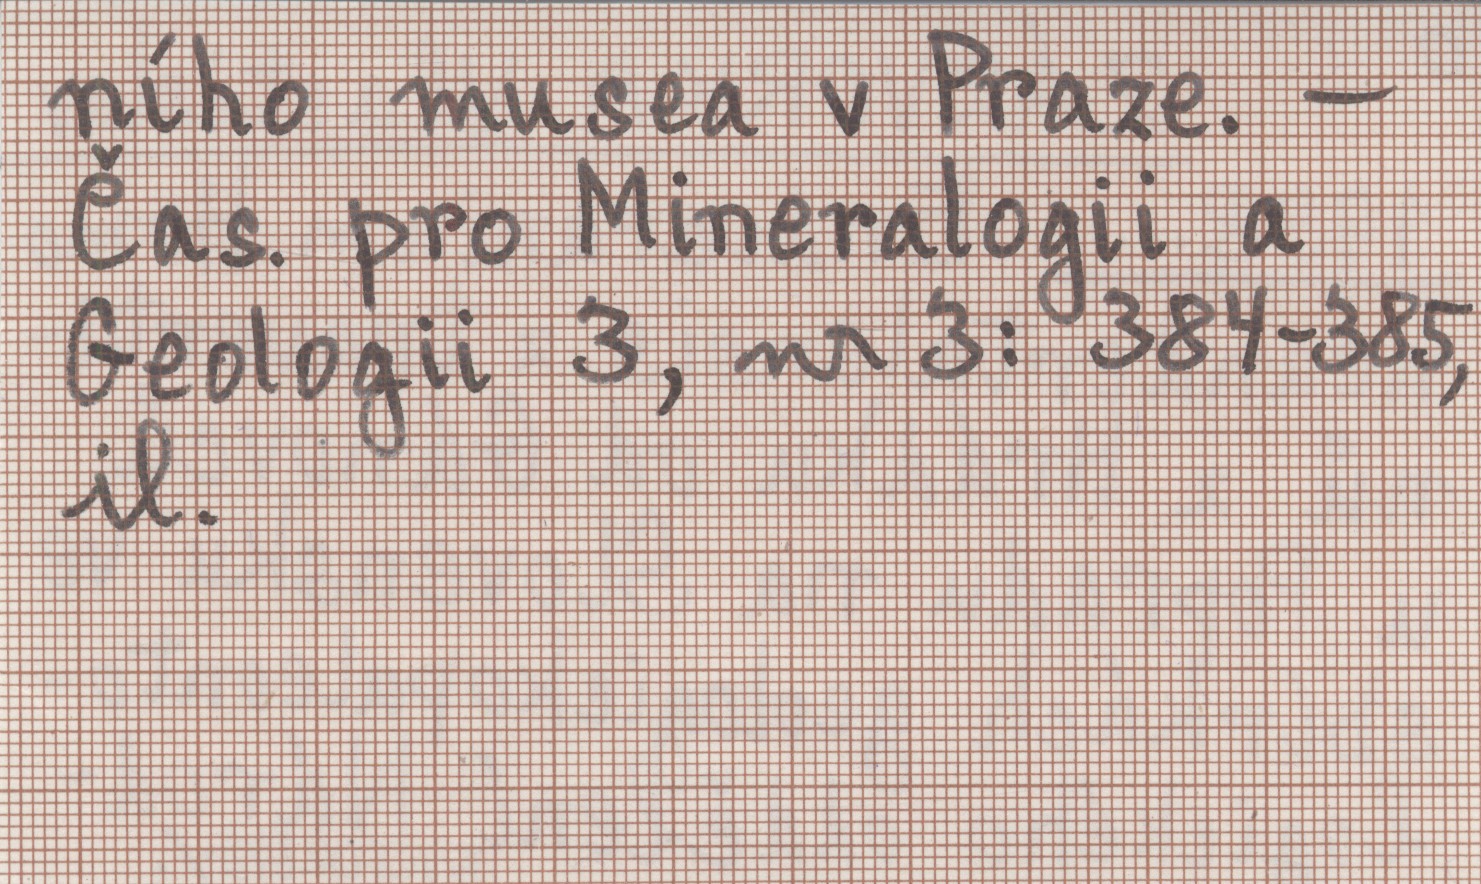 ního musea v Praze. —
Čas. pro Mineralogii a
Geologii 3, nr 3: 384-385,
il.